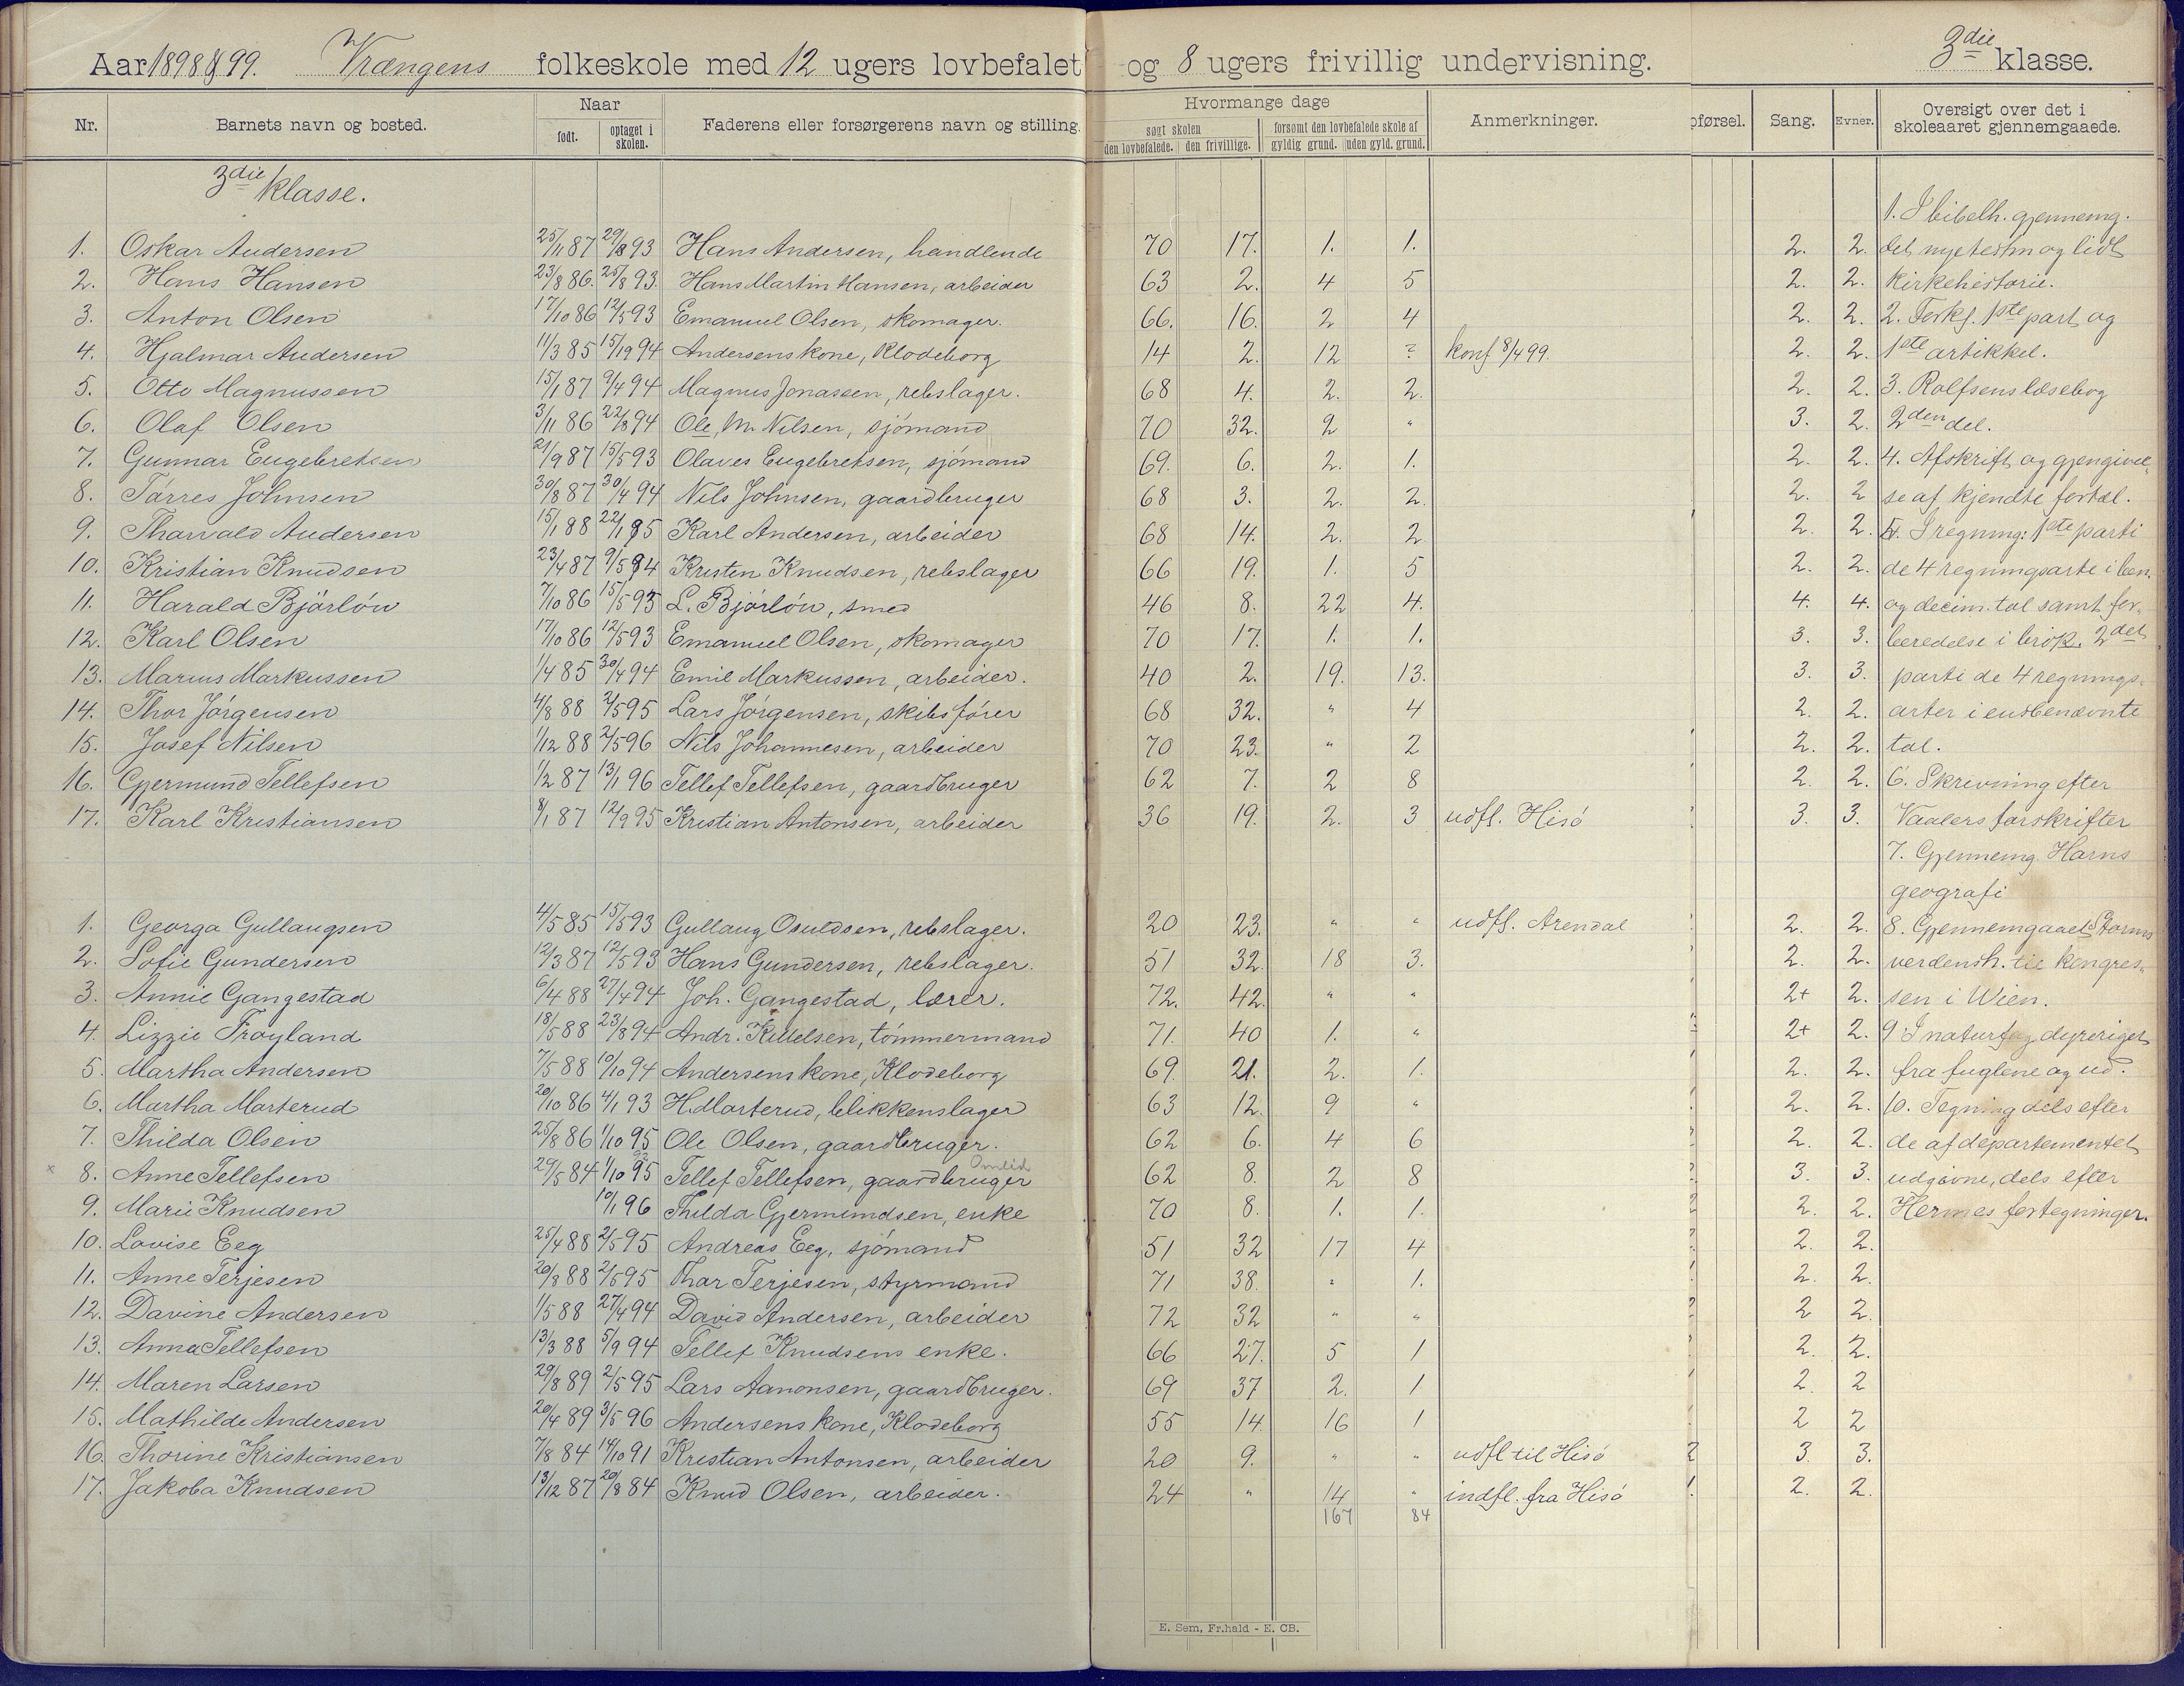 Aar 1898/99. Vrængens folkeskole med 12 ugers lovbefalet og 8 ugers frivillig undervisning. 3die klasse.
Nr. Barnets navn og bosted. Naar født. optaget i skolen. Faderens eller forsørgerens navn og stilling. Hvormange dage søgt skolen den lovbefalede. den frivillige. forsømt den lovbefalede skole af gyldig grund. uden gyld. grund. Anmerkninger. pførsel. Sang. Evner. Oversigt over det i skoleaaret gjennemgaaede.
3die klasse.
1. I bibelh. gjennemg.
1. Oskar Andersen 25/11 87 29/8 93 Hans Andersen, handlende 70 17. 1. 1. 2. 2. det nye testm og lidt
2. Hans Hansen 23/8 86. 25/8 93. Hans Martin Hansen, arbeider 63 2. 4 5 2. 2. kirkehistorie.
3. Anton Olsen 17/10 86 12/5 93 Emanuel Olsen, skomager. 66. 16. 2 4 2. 2. 2. Forkl. 1ste part og
4. Hjalmar Andersen 11/3 85 15/19 94 Andersens kone, Klodeborg 14 2. 12 ? konf 8/4 99. 2. 2. 1ste artikkel.
5. Otto Magnussen 15/1 87 9/4 94 Magnus Jonassen, rebslager. 68 4. 2. 2. 2. 2. 3. Rolfsens læsebog
6. Olaf Olsen 3/11 86 22/8 94 Ole M. Nilsen, sjömand 70 32. 2 " 3. 2. 2den del.
7. Gunnar Engebretsen 21/9 87 15/5 93 Olaves Engebretsen, sjömand 69. 6. 2. 1. 2. 2. 4. Afskrift og gjengivel-
8. Törres Johnsen 30/8 87 30/4 94 Nils Johnsen, gaardbruger 68 3. 2. 2. 2. 2 se af kjendte fortæl.
9. Tharvald Andersen 15/1 88 22/1 95 Karl Andersen, arbeider 68 14. 2. 2 2. 2. 5. I regning: 1ste parti
10. Kristian Knudsen 23/4 87 9/5 94 Kristen Knudsen, rebslager 66 19. 1. 5 2. 2. de 4 regningsarte i ben.
11. Harald Björlöw 7/10 86 15/5 93 L. Björlöw, smed 46 8. 22 4. 4. 4. og decim. tal samt for-
12. Karl Olsen 17/10 86 12/5 93 Emanuel Olsen, skomager 70 17. 1. 1. 3. 3. beredelse i brök. 2det
13. Marius Markussen 1/4 85 30/4 94 Emil Markussen, arbeider. 40 2. 19. 13. 3. 3. parti de 4 regnings-
14. Thor Jörgensen 4/8 88 2/5 95 Lars Jörgensen, skibsförer 68 32. " 4 2. 2. arter i ensbenævnte
15. Josef Nilsen 1/12 88 2/5 96 Nils Johannesen, arbeider 70 23. " 2 2. 2. tal.
16. Gjermund Tellefsen 1/2 87 13/1 96 Tellef Tellefsen, gaardbruger 62 7. 2 8 2. 2. 6. Skrivning efter
17. Karl Kristiansen 8/1 87 12/9 95 Kristian Antonsen, arbeider 36 19. 2. 3 udfl. Hisö 3. 3. Vaalers forskrifter
7. Gjennemg. Horns
geografi
1. Georga Gullaugsen 4/5 85 15/5 93 Gullaug Osuldsen, rebslager. 20 23. " " udfl. Arendal 2. 2. 8. Gjennemgaaet Storms
2. Sofie Gundersen 12/3 87 12/5 93 Hans Gundersen, rebslager. 51 32. 18 3. 2. 2. verdensh. til kongres-
3. Annie Gangestad 6/4 88 27/4 94 Joh. Gangestad, lærer. 72. 42. " " 2+ 2. sen i Wien.
4. Lizzie Fröyland 18/5 88 23/8 94 Andr. Killelsen, tömmermand 71. 40 1. " 2+ 2. 9 I naturfag dyreriget
5. Martha Andersen 7/5 88 10/10 94 Andersens kone, Klodeborg 69. 21. 2. 1. 2. 2. fra fuglene og ud.
6. Martha Marterud 20/10 86 4/1 93 H. Marterud, blikkenslager 63 12. 9 " 2. 2. 10. Tegning dels efter
7. Thilda Olsen 25/8 86 1/10 95 Ole Olsen, gaardbruger. 62 6. 4 6 2. 2. de af departementet
x 8. Anne Tellefsen 29/5 84 1/10 95 Tellef Tellefsen, gaardbruger 62 8. 2 8 3. 3. udgivne, dels efter
9. Marie Knudsen 10/1 96 Thilda Gjermundsen, enke 70 8. 1. 1. 2. 2. Hermes fortegninger.
10. Lovise Eeg 25/4 88 2/5 95 Andreas Eeg, sjömand 51 32 17 4 2. 2.
11. Anne Terjesen 20/8 88 2/5 95 Thor Terjesen, styrmand 71 38. " 1. 2. 2.
12. Davine Andersen 1/5 88 27/4 94 David Andersen, arbeider 72 32 " " 2 2.
13. Anna Tellefsen 13/3 88 5/9 94 Tellef Knudsens enke. 66 27. 5 1 2. 2.
14. Maren Larsen 29/8 89 2/5 95 Lars Aanonsen, gaardbruger. 69 37 2. 1 2. 2
15. Mathilde Andersen 20/4 89 3/5 96 Andersens kone, Klodeborg 55 14. 16 1 2 2
16. Thorine Kristiansen 7/8 84 14/10 91 Kristian Antonsen, arbeider 20 9. " " udfl til Hisö 3. 3.
17. Jakoba Knudsen 13/12 87 20/8 84 Knud Olsen, arbeider. 24 " 14 " indfl. fra Hisö 2. 2.
167 84
E. Sem, Fr.hald - E. CB.